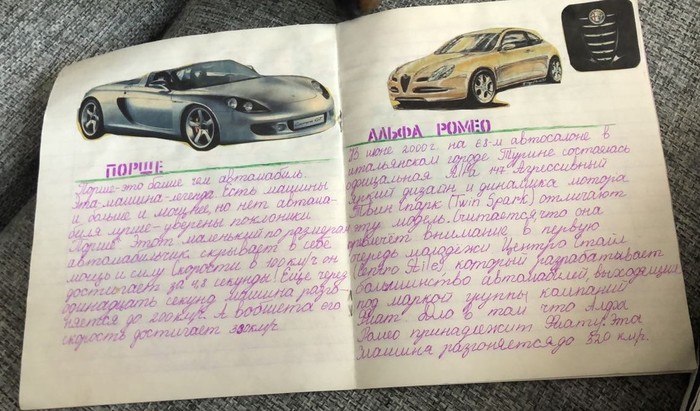 ПОРШЕ
Порше-это больше чем автомобиль.
Эта машина-легенда. Есть машины
и больше и мощнее, но нет автомо-
биля лучше-уверены поклонники
Порше. Этот маленький по размерам
автомобильчик скрывает в себе
мощь и силу. Скорости в 100км/ч он
достигает за 4,8 секунды! Ещё через
одинадцать секунд машина разго-
няется до 200км/ч. А вобшета его
скорость достигает 330км/ч.
АЛЬФА РОМЕО
В июне 2000г. на 68-м автосалоне в
итальянском городе Турине состоялась
официальная 147. Агрессивный
дизайн и динамика мотора
Твин Спарк (Twin Spark) отличают
эту модель. Считается,что она
привлечёт внимание в первую
очередь молодёжи Центро Стайл
(Centro Stile), который разрабатывает
большинство автомобилей, выходящих
под маркой группы компаний
Фиат. Дело в том что Алфа
Ромео принадлежит Фиату. Эта
машина разгоняется до 320 км/ч.